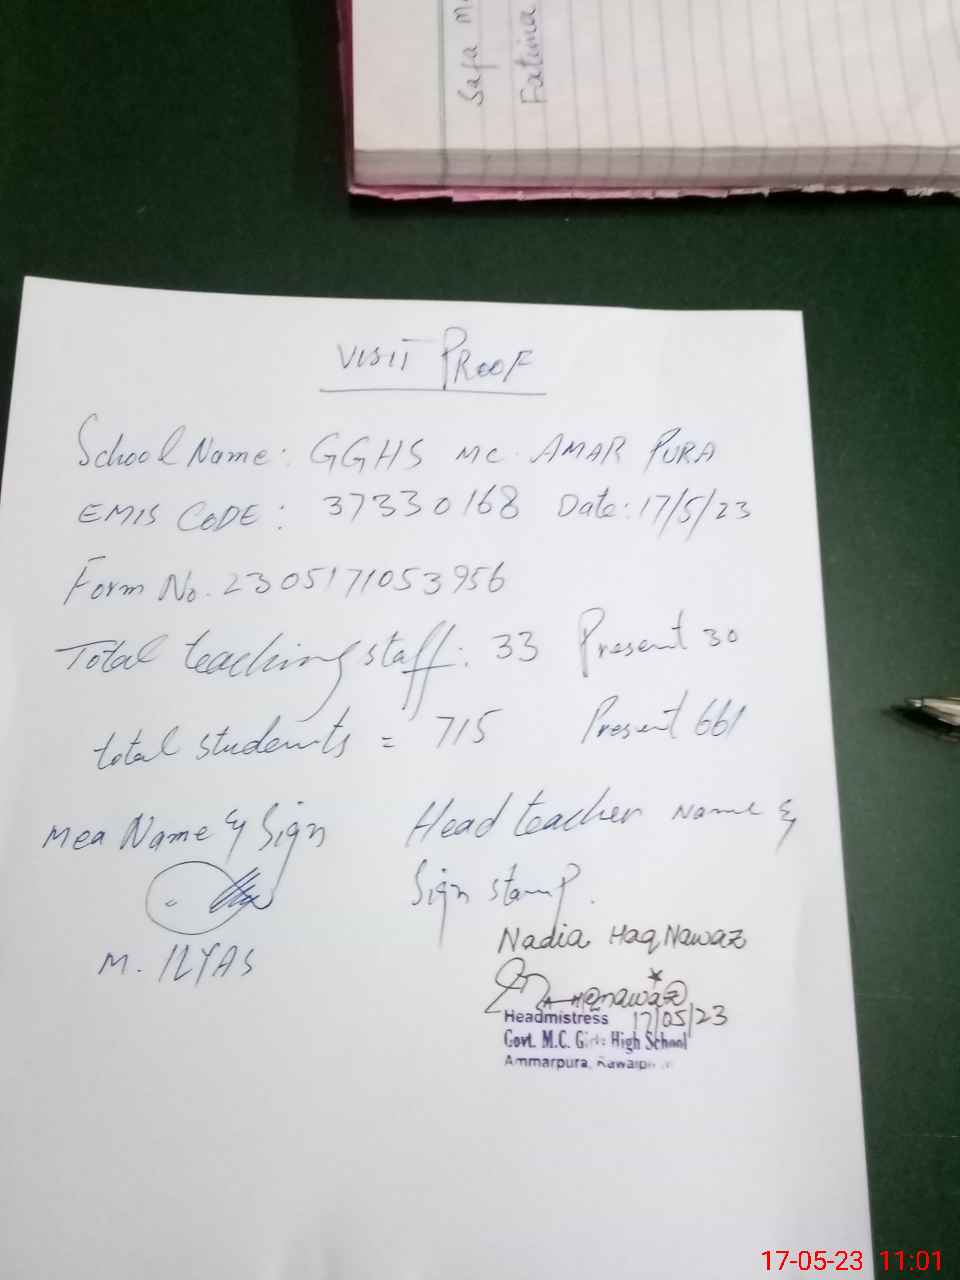 Safa
Fatima
VISIT PROOF
School Name: GGHS MC. AMAR PURA
EMIS CODE: 37330168 Date: 17/5/23
Form No. 2305171053956
Total teaching staff: 33 Present 30
total students = 715 Present 661
Mea Name & Sign Head teacher Name &
Sign stamp.
Nadia Haq Nawaz
M. ILYAS
Headmistress 17/05/23
Govt. M.C. Girls High School
Ammarpura,
17-05-23 11:01